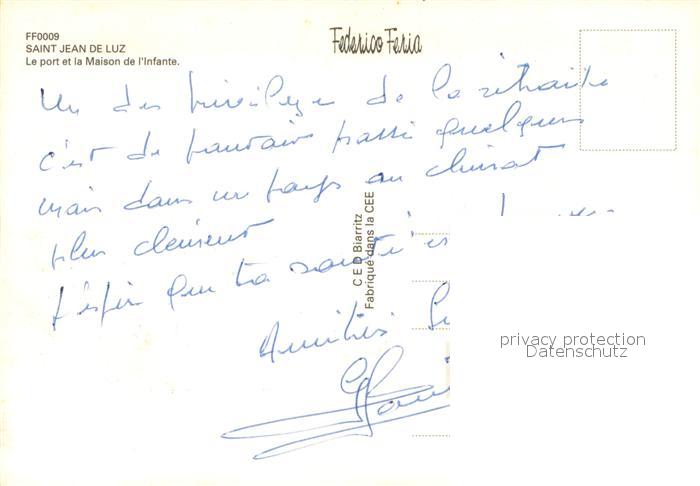 FF0009
SAINT JEAN DE LUZ
Le port et la Maison de l'Infante.
Federico Feria
Un des privilège de la retraite
c'est de pouvoir passé quelques
mais dans un pays au climat
plus clément
J'espère que ta santé es
Amitiés
C E D Biarritz
Fabriqué dans la CEE
privacy protection
Datenschutz